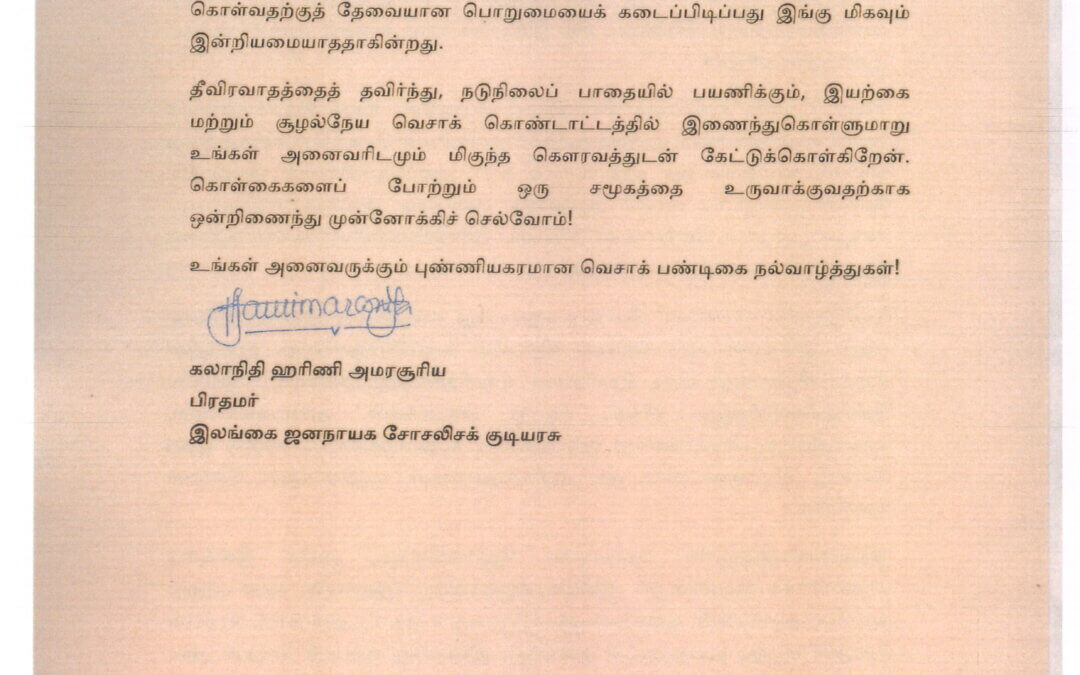 கொள்வதற்குத் தேவையான பொறுமையைக் கடைப்பிடிப்பது இங்கு மிகவும்
இன்றியமையாததாகின்றது.
தீவிரவாதத்தைத் தவிர்ந்து, நடுநிலைப் பாதையில் பயணிக்கும், இயற்கை
மற்றும் சூழல்நேய வெசாக் கொண்டாட்டத்தில் இணைந்துகொள்ளுமாறு
உங்கள் அனைவரிடமும் மிகுந்த கௌரவத்துடன் கேட்டுக்கொள்கிறேன்.
கொள்கைகளைப் போற்றும் ஒரு சமூகத்தை உருவாக்குவதற்காக
ஒன்றிணைந்து முன்னோக்கிச் செல்வோம்!
உங்கள் அனைவருக்கும் புண்ணியகரமான வெசாக் பண்டிகை நல்வாழ்த்துகள்!
கலாநிதி ஹரிணி அமரசூரிய
பிரதமர்
இலங்கை ஜனநாயக சோசலிசக் குடியரசு